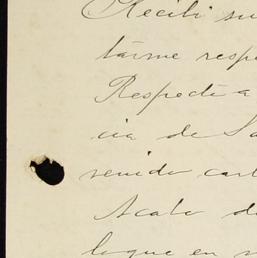 Recibi su
tarme resp
Respecto a
cia de Sa
venido car
Acabo d
logue en